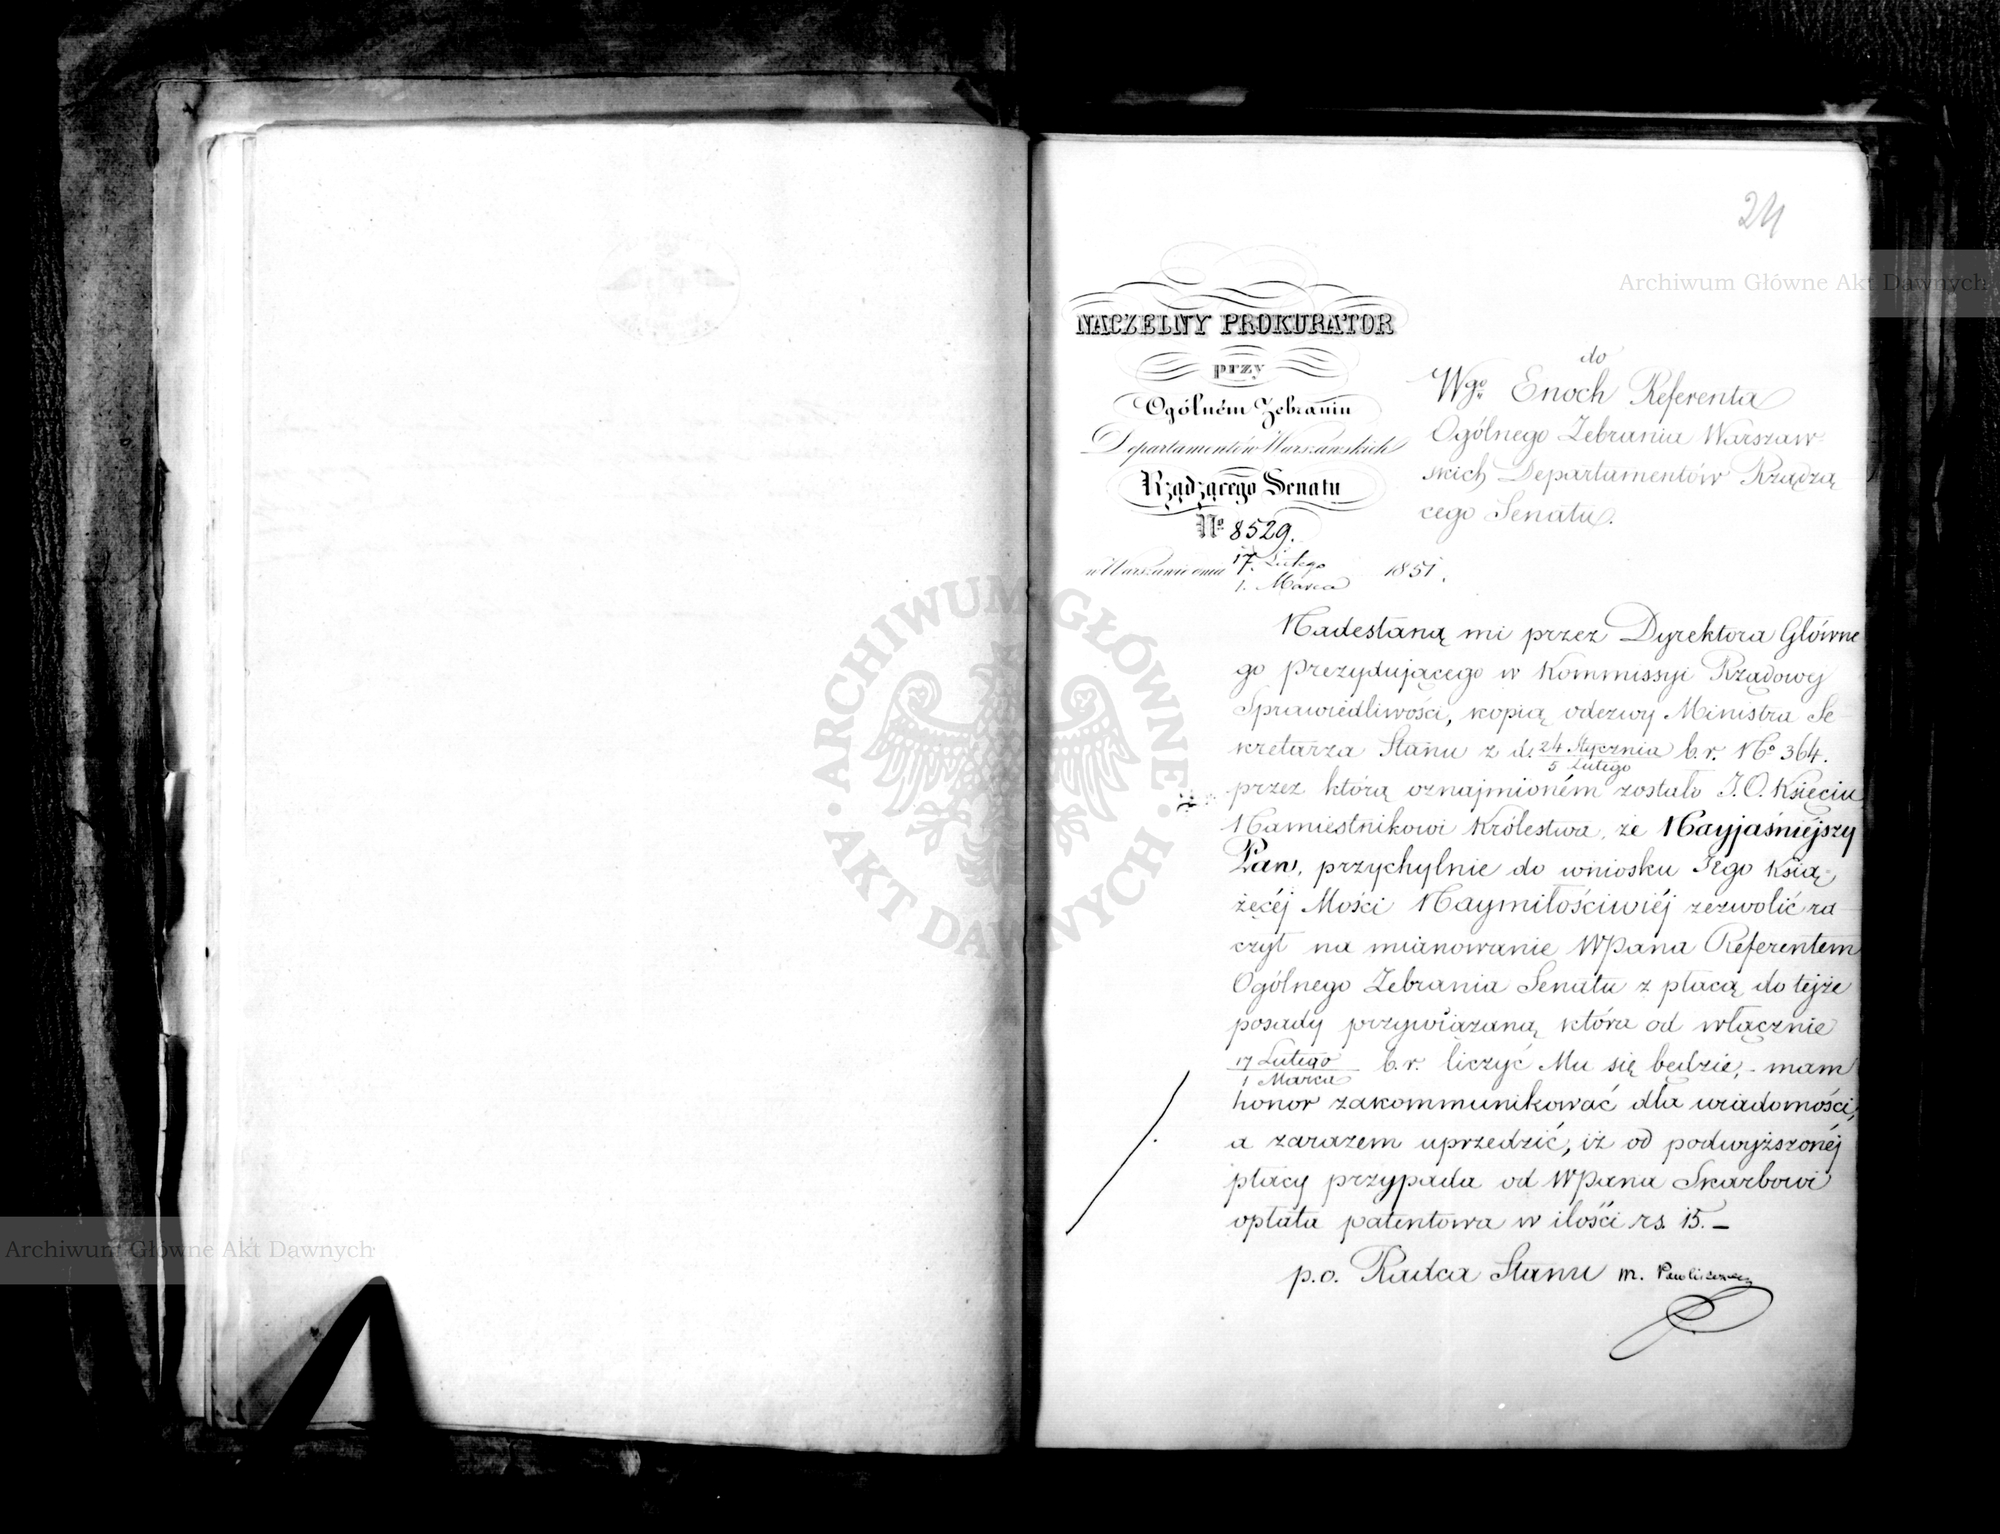 24
Archiwum Główne Akt Dawnych
NACZELNY PROKURATOR
przy
Ogólném Zebraniu
Departamentów Warszawskich
Rządzącego Senatu
No 8529.
w Warszawie dnia 17. Lutego
1. Marca 1851.
do
Wgo Enoch Referenta
Ogólnego Zebrania Warszaw-
skich Departamentów Rządzą
cego Senatu.
Nadesłaną mi przez Dyrektora Główne
go prezydującego w Kommissyi Rządowej
Sprawiedliwości, kopią odezwy Ministra Se
kretarza Stanu z d. 24 Stycznia b.r. No 364.
5 Lutego
przez którą oznajmioném zostało J.O. Księciu
Namiestnikowi Królestwa, że Nayjaśniejszy
Pan, przychylnie do wniosku Jego Ksią-
żęcéj Mości Naymiłościwiéj zezwolić ra
czył na mianowanie WPana Referentem
Ogólnego Zebrania Senatu z płacą do tejże
posady przywiązaną, która od włącznie
17 Lutego b.r. liczyć Mu się będzie, - mam
1 Marca
honor zakommunikować dla wiadomości,
a zarazem uprzedzić, iż od podwyższonéj
płacy przypada od WPana Skarbowi
opłata patentowa w ilości rs. 15. -
p.o. Radca Stanu M.
ARCHIWUM GŁÓWNE
AKT DAWNYCH
Archiwum Główne Akt Dawnych